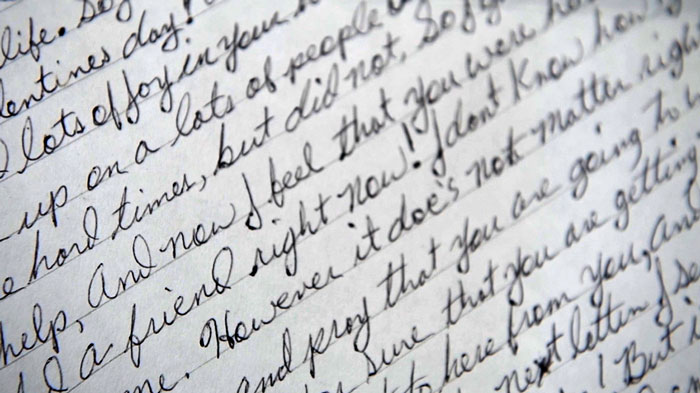 life. So
lentines day!
lots of joy in your
up on a lots of people
hard times, but did not. So
help, and now I feel that you were
a friend right now! I dont know how
me. However it doe's not matter right
and pray that you are going to
sure that you are getting
to here from you, and
next letter I
! But